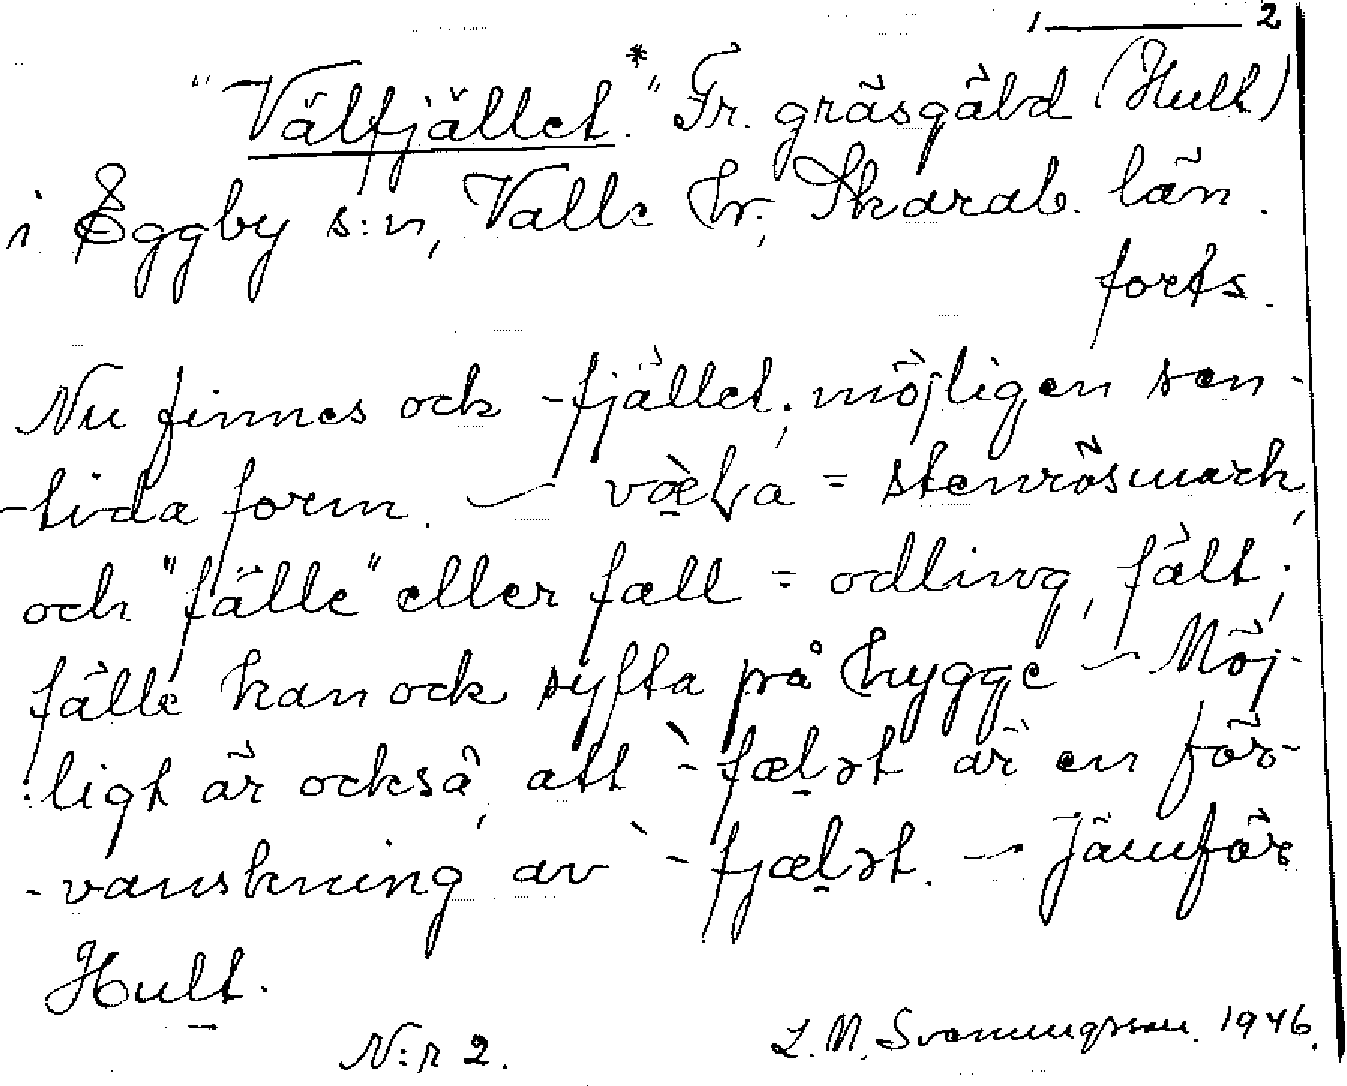 1 — 2
"Välfjället.*" Fr. gräsgäld (Hult)
i Eggby s:n, Valle hr, Skarab. län.
forts.
Nu finnes ock -fjället; möjligen sen-
-tida form. — = stenrösmark,
och "fälle" eller fall = odling, fält;
fälle kan ock syfta på hygge — Möj-
ligt är också, att `-fælət är en för-
-vanskning av `-fjælət. — Jämför
Hult.
N:r 2. L. M. Svenungsson. 1946.